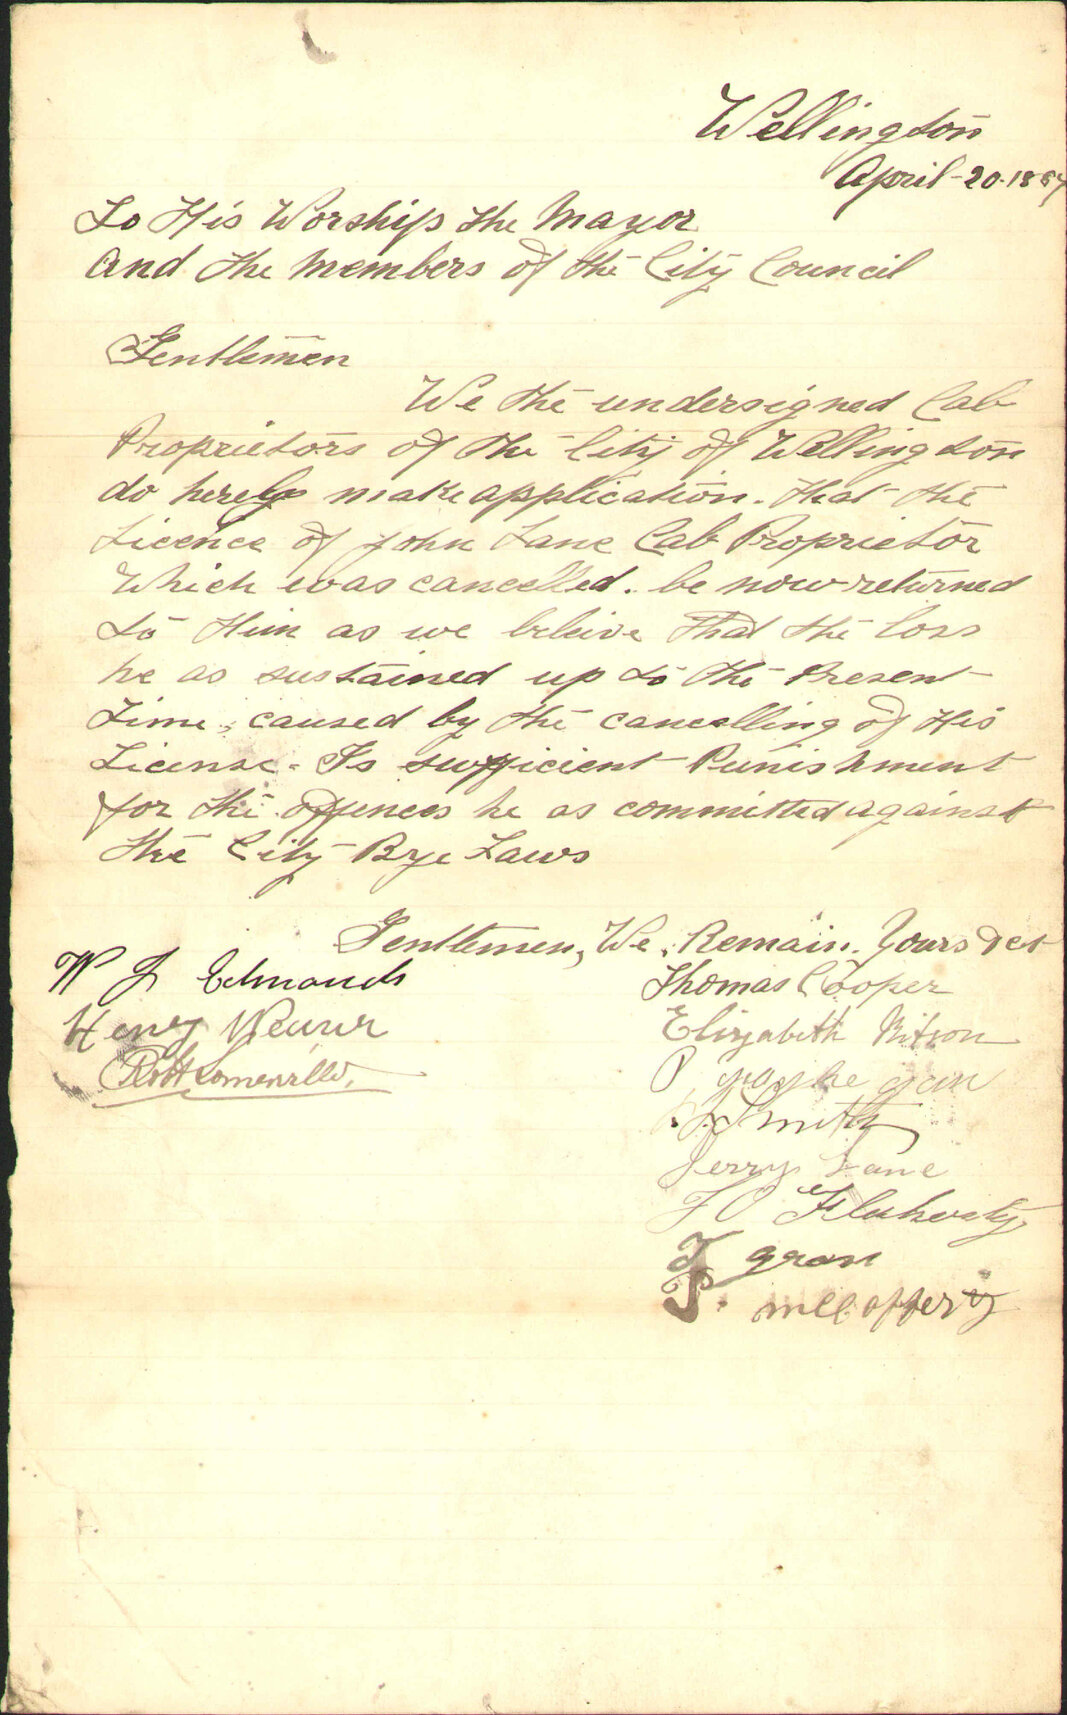 Wellington
April-20-188
To His Worship the Mayor
And the Members of the City Council
Gentlemen
We the undersigned Cab
Proprietors of the City of Wellington
do hereby make application. that the
Licence of John Lane Cab Proprietor
Which was cancelled. be now returned
to Him as we beleive that the loss
he as sustained up to the Present
Time, caused by the cancelling of His
License. Is sufficient Punishment
for the offences he as committed against
the City Bye Laws
Gentlemen, We, Remain. Yours &ct
W J Edmonds
Henry
Robt Somerville
Thomas Cooper
Elizabeth
P
Smith
Jerry Lane
F O Flaherty
T
P. mccafferty